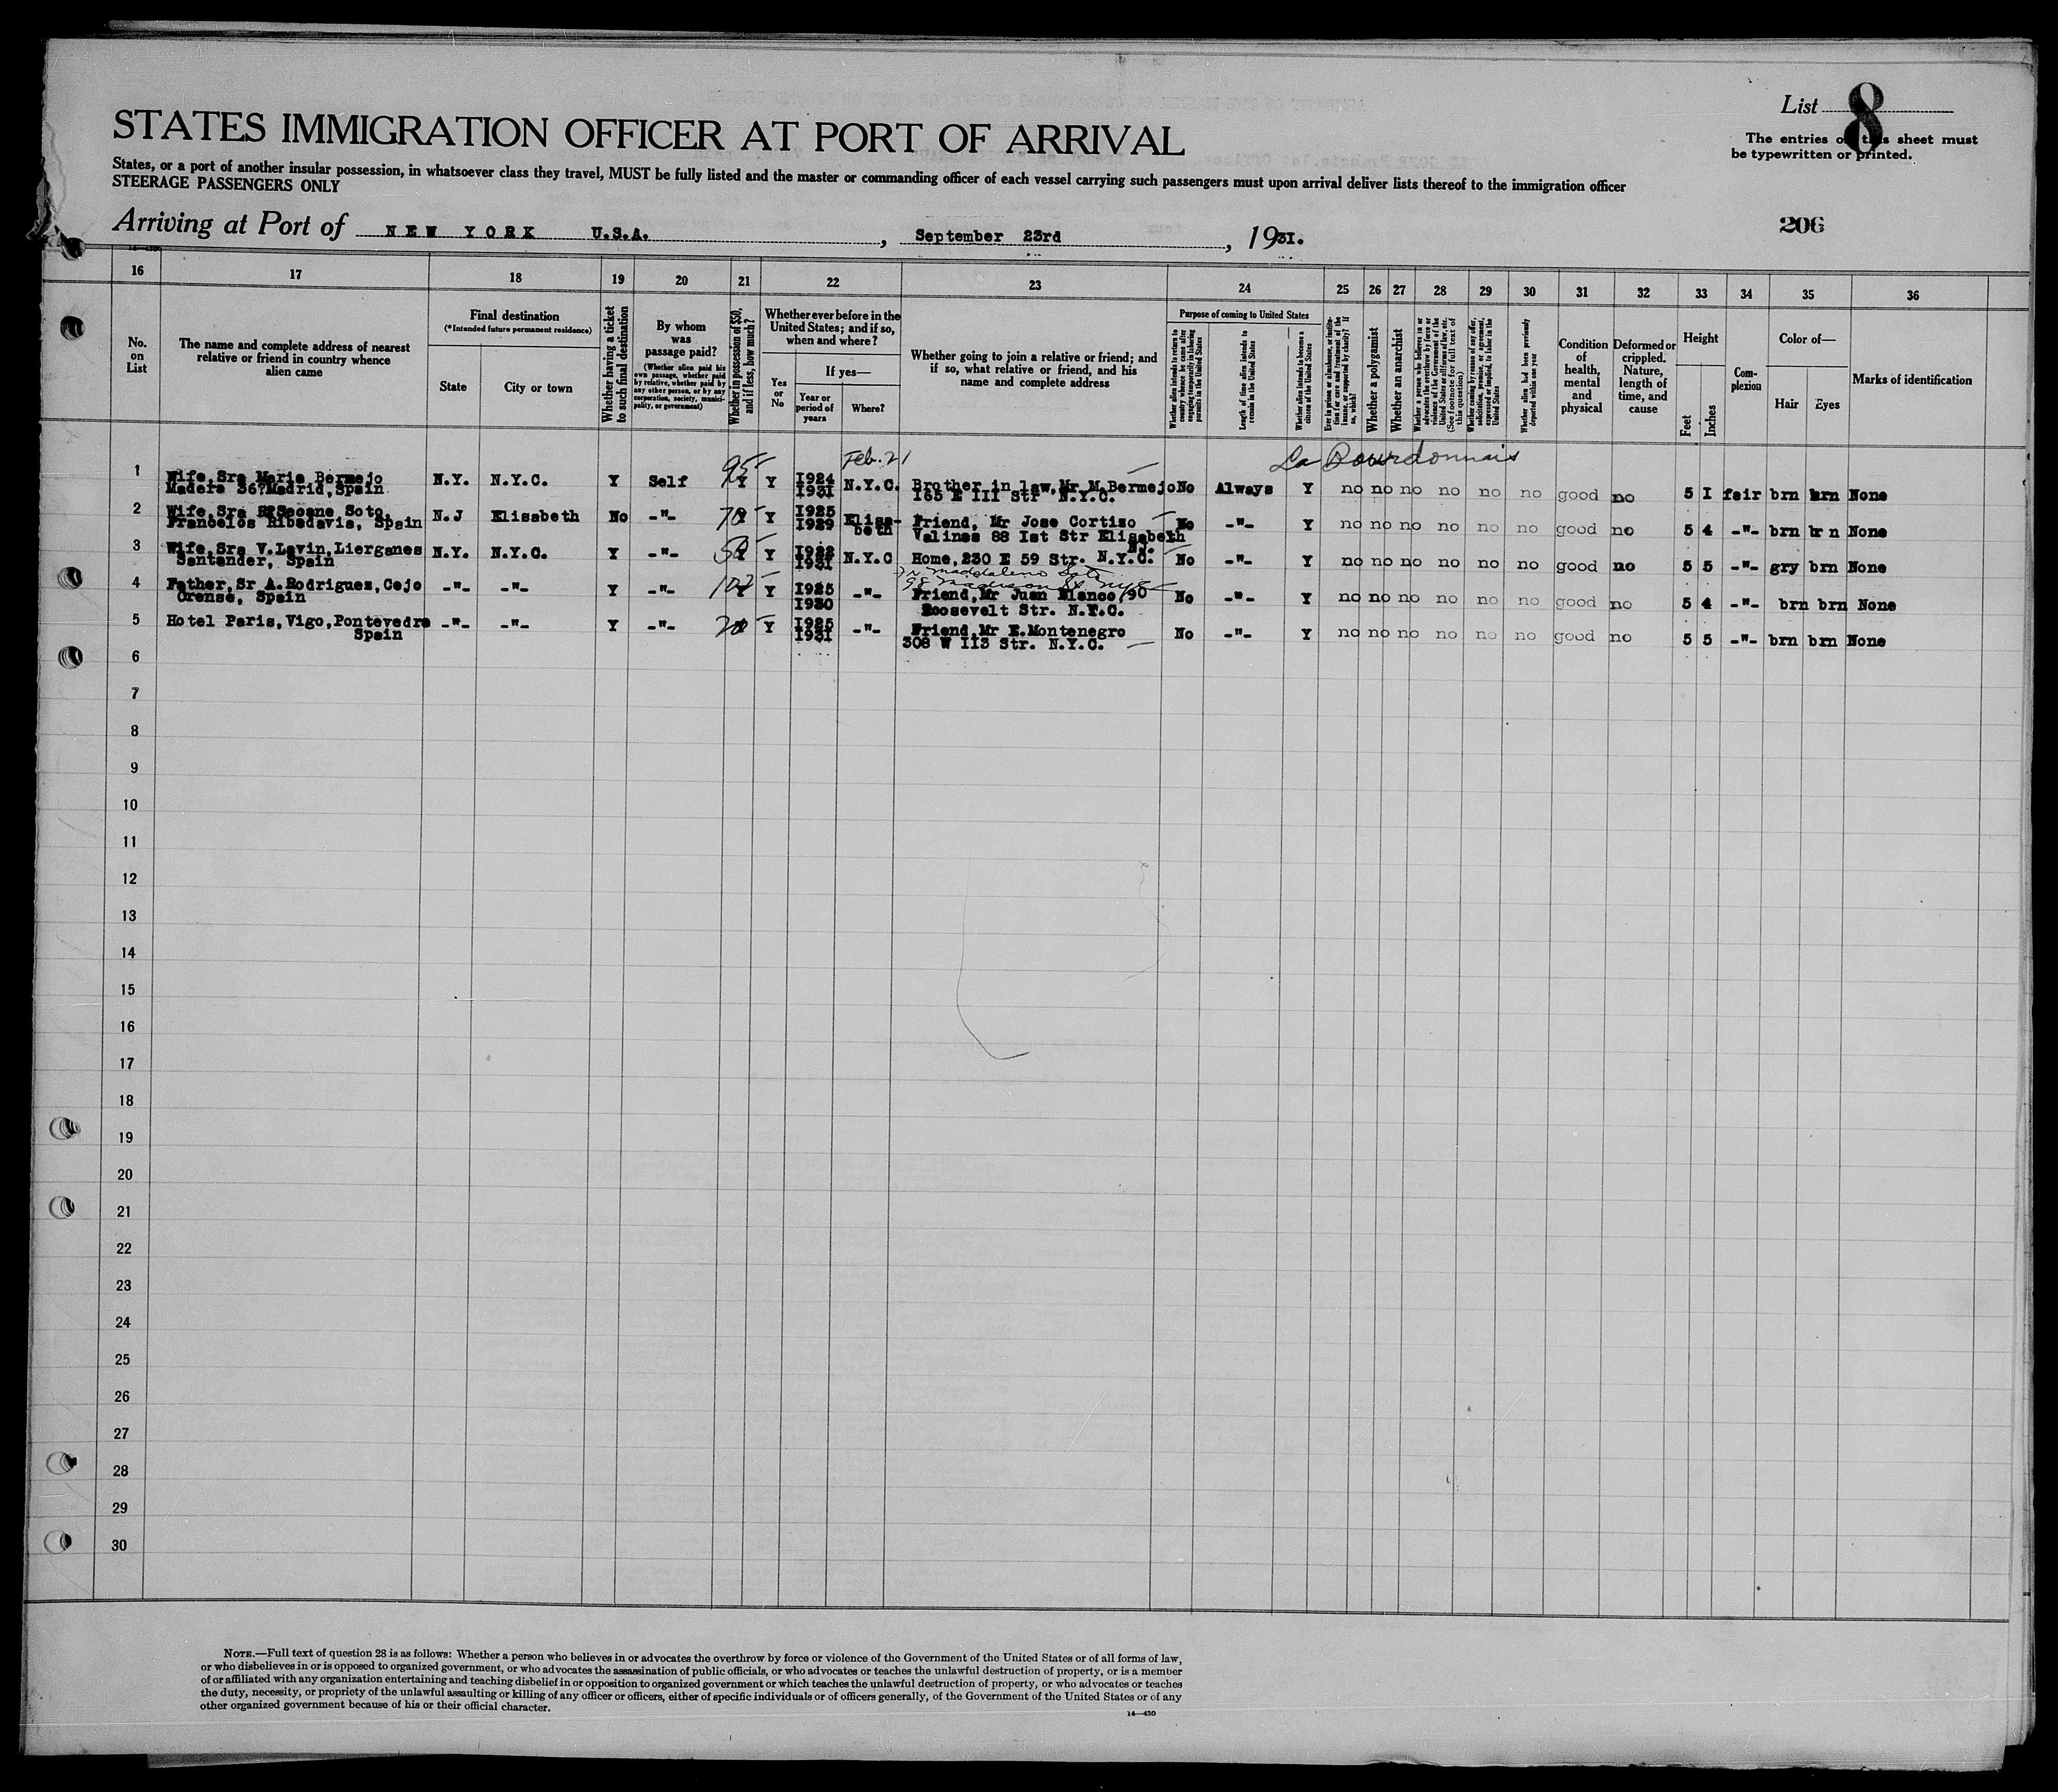 List 8
STATES IMMIGRATION OFFICER AT PORT OF ARRIVAL
The entries on this sheet must
be typewritten or printed.
States, or a port of another insular possession, in whatsoever class they travel, MUST be fully listed and the master or commanding officer of each vessel carrying such passengers must upon arrival deliver lists thereof to the immigration officer
STEERAGE PASSENGERS ONLY
206
Arriving at Port of NEW YORK U.S.A. , September 23rd , 1931.
16 17 18 19 20 21 22 23 24 25 26 27 28 29 30 31 32 33 34 35 36
No. on List
The name and complete address of nearest relative or friend in country whence alien came
Final destination
(*Intended future permanent residence)
State
City or town
Whether having a ticket to such final destination
By whom was passage paid?
(Whether alien paid his own passage, whether paid by relative, whether paid by any other person, or by any corporation, society, municipality, or government)
Whether in possession of $50, and if less, how much?
Whether ever before in the United States; and if so, when and where?
Yes or No
If yes—
Year or period of years
Where?
Whether going to join a relative or friend; and if so, what relative or friend, and his name and complete address
Purpose of coming to United States
Whether alien intends to return to country whence he came after engaging temporarily in laboring pursuits in the United States
Length of time alien intends to remain in the United States
Whether alien intends to become a citizen of the United States
Whether a polygamist
Whether an anarchist
(See footnote for full text of this question)
Whether alien had been previously deported within one year
Condition of health, mental and physical
Deformed or crippled. Nature, length of time, and cause
Height
Feet
Inches
Complexion
Color of—
Hair
Eyes
Marks of identification
Feb. 21
La Bourdonnais
1 Wife, Sra Maria Bermejo N.Y. N.Y.C. Y Self 95 Y Y 1924 N.Y.C. Brother in law, Mr M.Bermejo No Always Y no no no no no no good no 5 I fair brn brn None
Madera 36?Madrid,Spain 1931 165 E III Str N.Y.C.
2 Wife, Sra Seoane Soto, N.J Elisabeth No -"- 70 Y 1925 Elisa- Friend, Mr Jose Cortizo No -"- Y no no no no no no good no 5 4 -"- brn br n None
Francelos Ribadavia, Spain 1929 beth Valinas 88 Ist Str Elisabeth
N.J.
3 Wife, Sra V.Lavin,Lierganes N.Y. N.Y.C. Y -"- Y 1922 N.Y.C Home, 230 E 59 Str. N.Y.C. No -"- Y no no no no no no good no 5 5 -"- gry brn None
Santander, Spain 1931
4 Father, Sr A.Rodriguez,Ceje -"- -"- Y -"- Y 1925 -"- Friend,Mr Juan Blanco 90 No -"- Y no no no no no no good no 5 4 -"- brn brn None
Orense, Spain 1930 Roosevelt Str. N.Y.C.
5 Hotel Paris, Vigo, Pontevedra -"- -"- Y -"- Y 1925 -"- Friend,Mr E.Montenegro No -"- Y no no no no no no good no 5 5 -"- brn brn None
Spain 1931 308 W II3 Str. N.Y.C.
6
7
8
9
10
11
12
13
14
15
16
17
18
19
20
21
22
23
24
25
26
27
28
29
30
NOTE.—Full text of question 28 is as follows: Whether a person who believes in or advocates the overthrow by force or violence of the Government of the United States or of all forms of law,
or who disbelieves in or is opposed to organized government, or who advocates the assassination of public officials, or who advocates or teaches the unlawful destruction of property, or is a member
of or affiliated with any organization entertaining and teaching disbelief in or opposition to organized government or which teaches the unlawful destruction of property, or who advocates or teaches
the duty, necessity, or propriety of the unlawful assaulting or killing of any officer or officers, either of specific individuals or of officers generally, of the Government of the United States or of any
other organized government because of his or their official character.
14—430